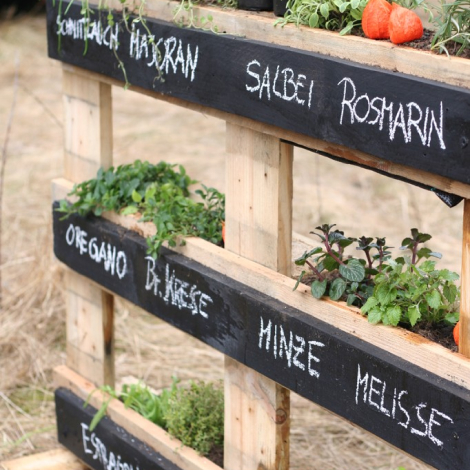 SCHNITTLAUCH MAJORAN SALBEI ROSMARIN
OREGANO Br. KRESSE MINZE MELISSE
ESTRAGON